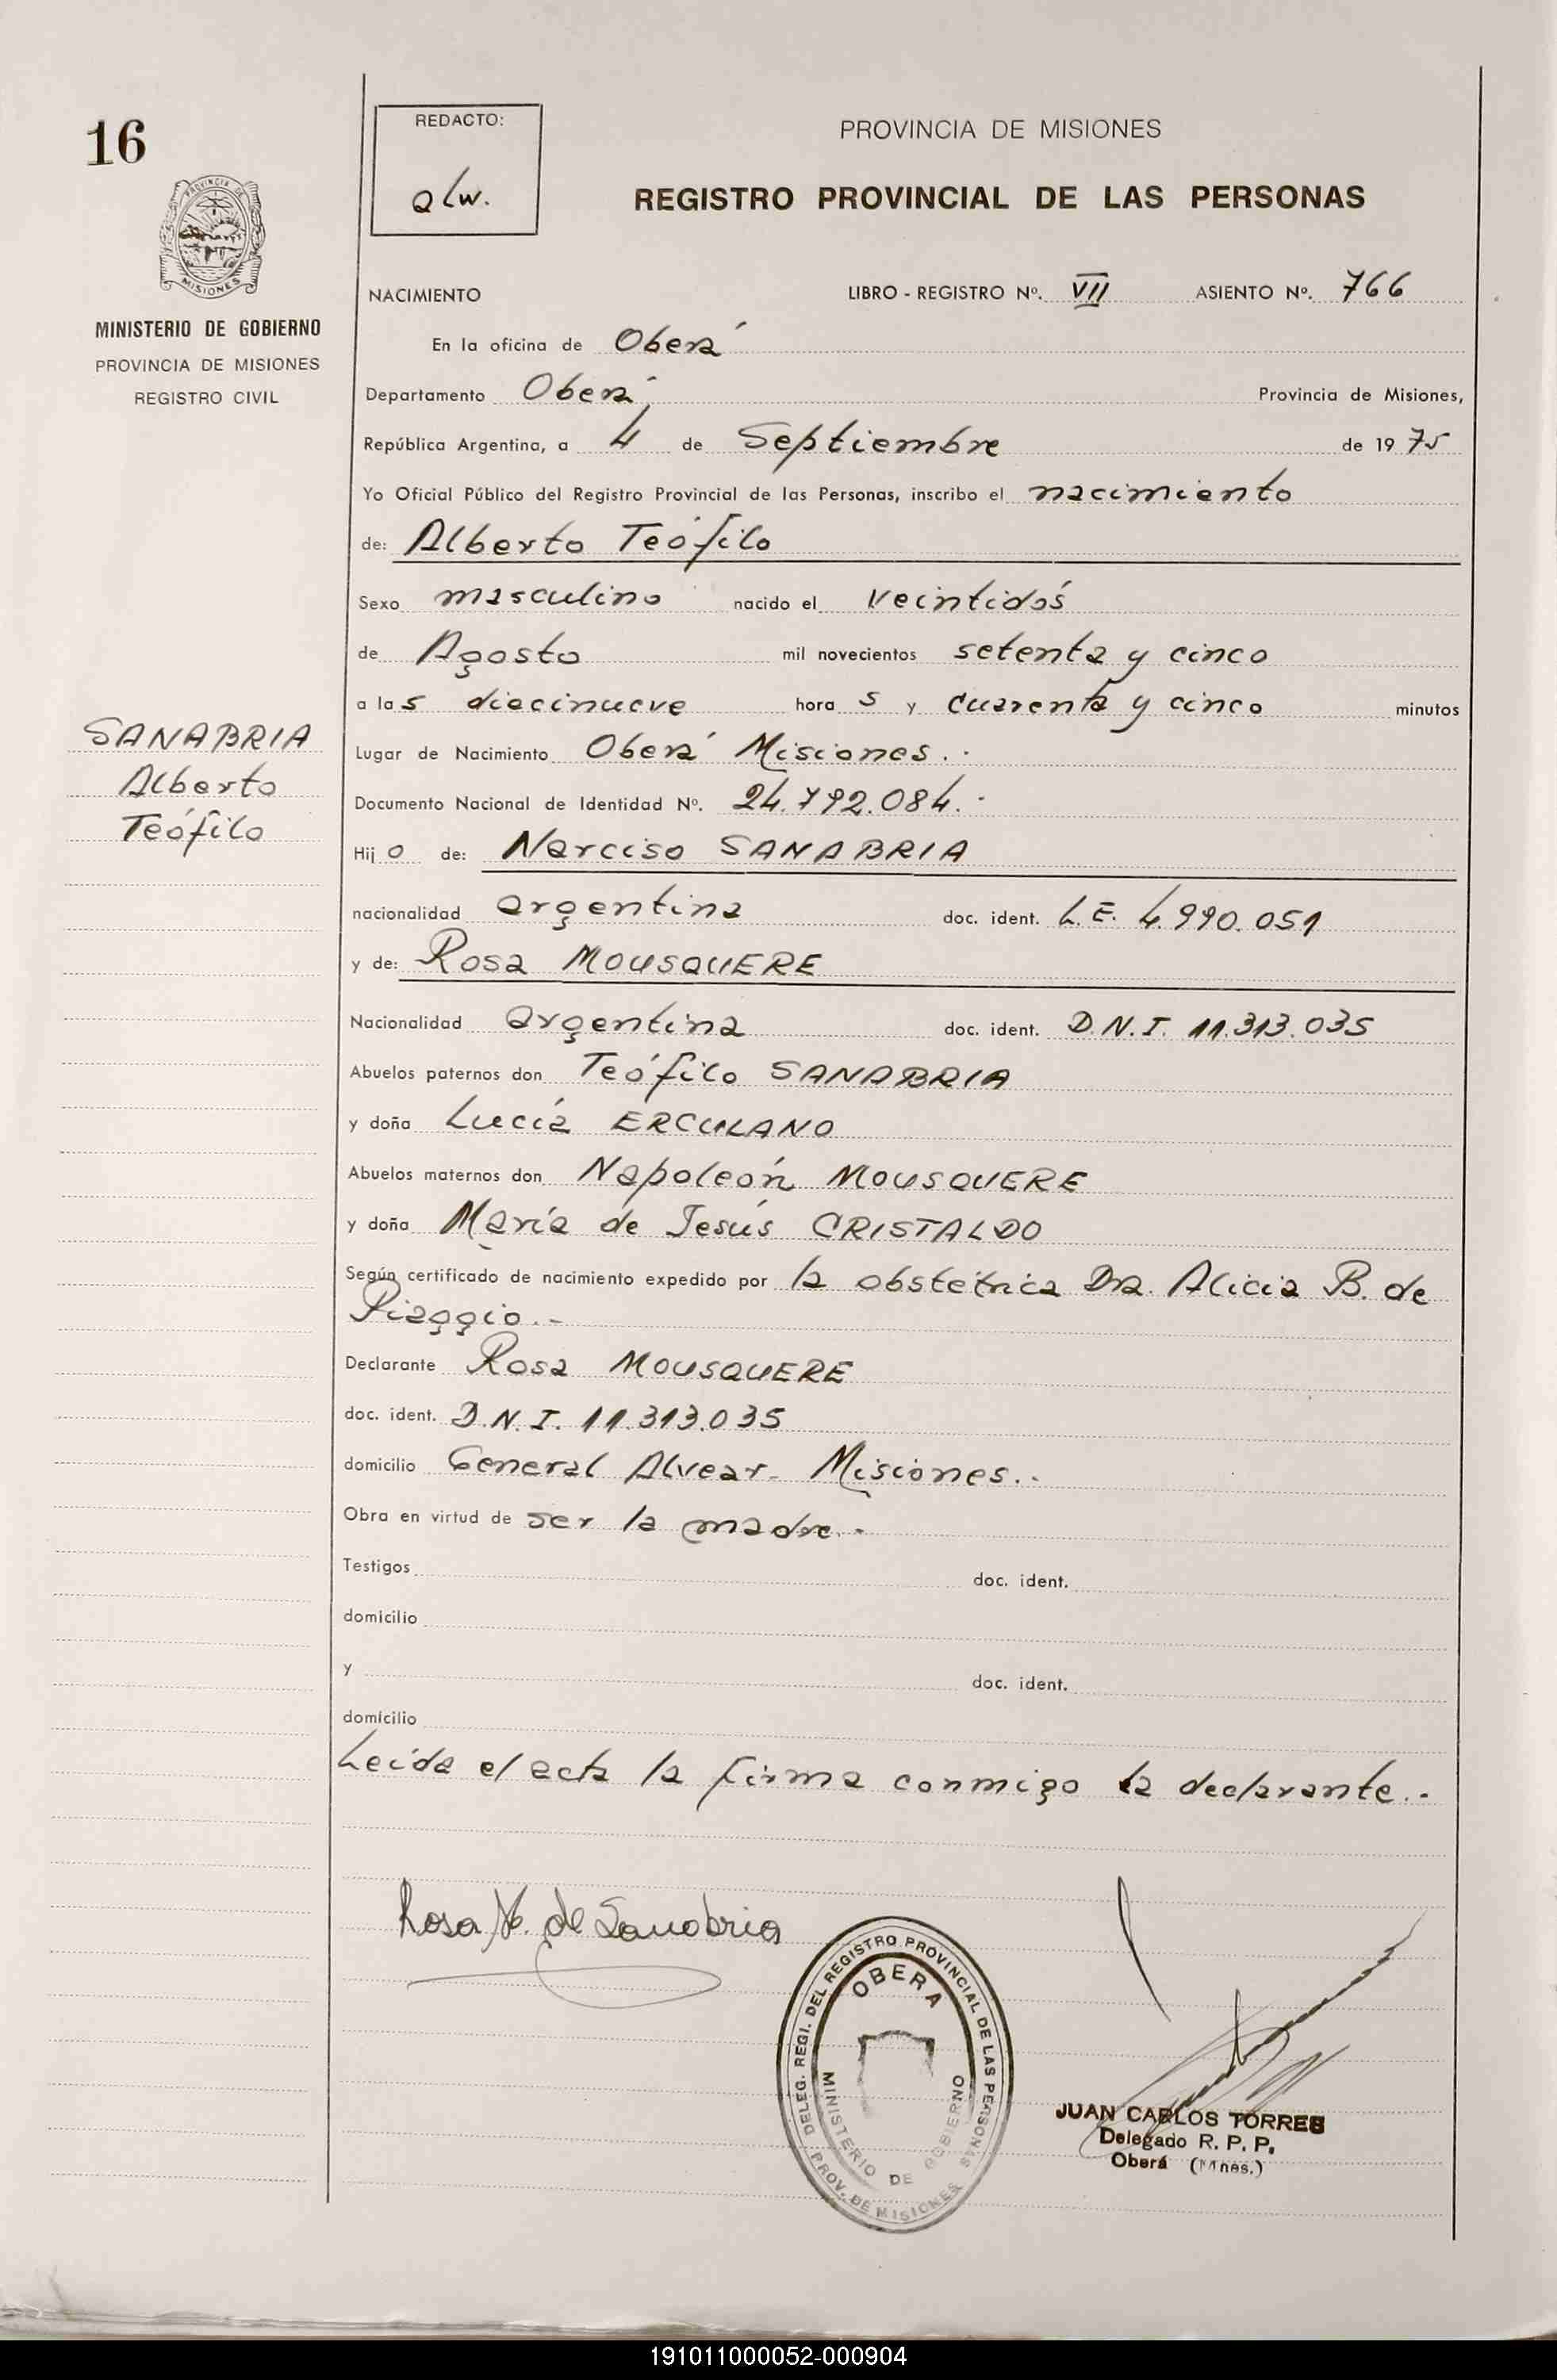 16
REDACTO:
alw.
PROVINCIA DE MISIONES
REGISTRO PROVINCIAL DE LAS PERSONAS
PROVINCIA DE
MISIONES
MINISTERIO DE GOBIERNO
PROVINCIA DE MISIONES
REGISTRO CIVIL
NACIMIENTO LIBRO - REGISTRO Nº. VII ASIENTO Nº. 766
En la oficina de Oberá
Departamento Oberá Provincia de Misiones,
República Argentina, a 4 de Septiembre de 1975
Yo Oficial Público del Registro Provincial de las Personas, inscribo el nacimiento
de: Alberto Teófilo
Sexo masculino nacido el veintidós
de Agosto mil novecientos setenta y cinco
a las diecinueve hora s y cuarenta y cinco minutos
SANABRIA
Alberto
Teófilo
Lugar de Nacimiento Oberá Misiones.-
Documento Nacional de Identidad Nº. 24.792.084.-
Hijo de: Narciso SANABRIA
nacionalidad argentina doc. ident. L.E. 4.990.051
y de: Rosa MOUSQUERE
Nacionalidad argentina doc. ident. D.N.I. 11.313.035
Abuelos paternos don Teófilo SANABRIA
y doña Lucía ERCULANO
Abuelos maternos don Napoleón MOUSQUERE
y doña María de Jesús CRISTALDO
Según certificado de nacimiento expedido por la obstétrica Dra. Alicia B. de
Piaggio.-
Declarante Rosa MOUSQUERE
doc. ident. D.N.I. 11.313.035
domicilio General Alvear- Misiones.-
Obra en virtud de ser la madre.-
Testigos doc. ident.
domicilio
y doc. ident.
domicilio
Leída el acta la firma conmigo la declarante.-
Rosa M. de Sanabria
DELEG. REGI. DEL REGISTRO PROVINCIAL DE LAS PERSONAS
OBERA
MINISTERIO DE GOBIERNO
PROV. DE MISIONES
JUAN CARLOS TORRES
Delegado R. P. P.
Oberá (Mnes.)
191011000052-000904